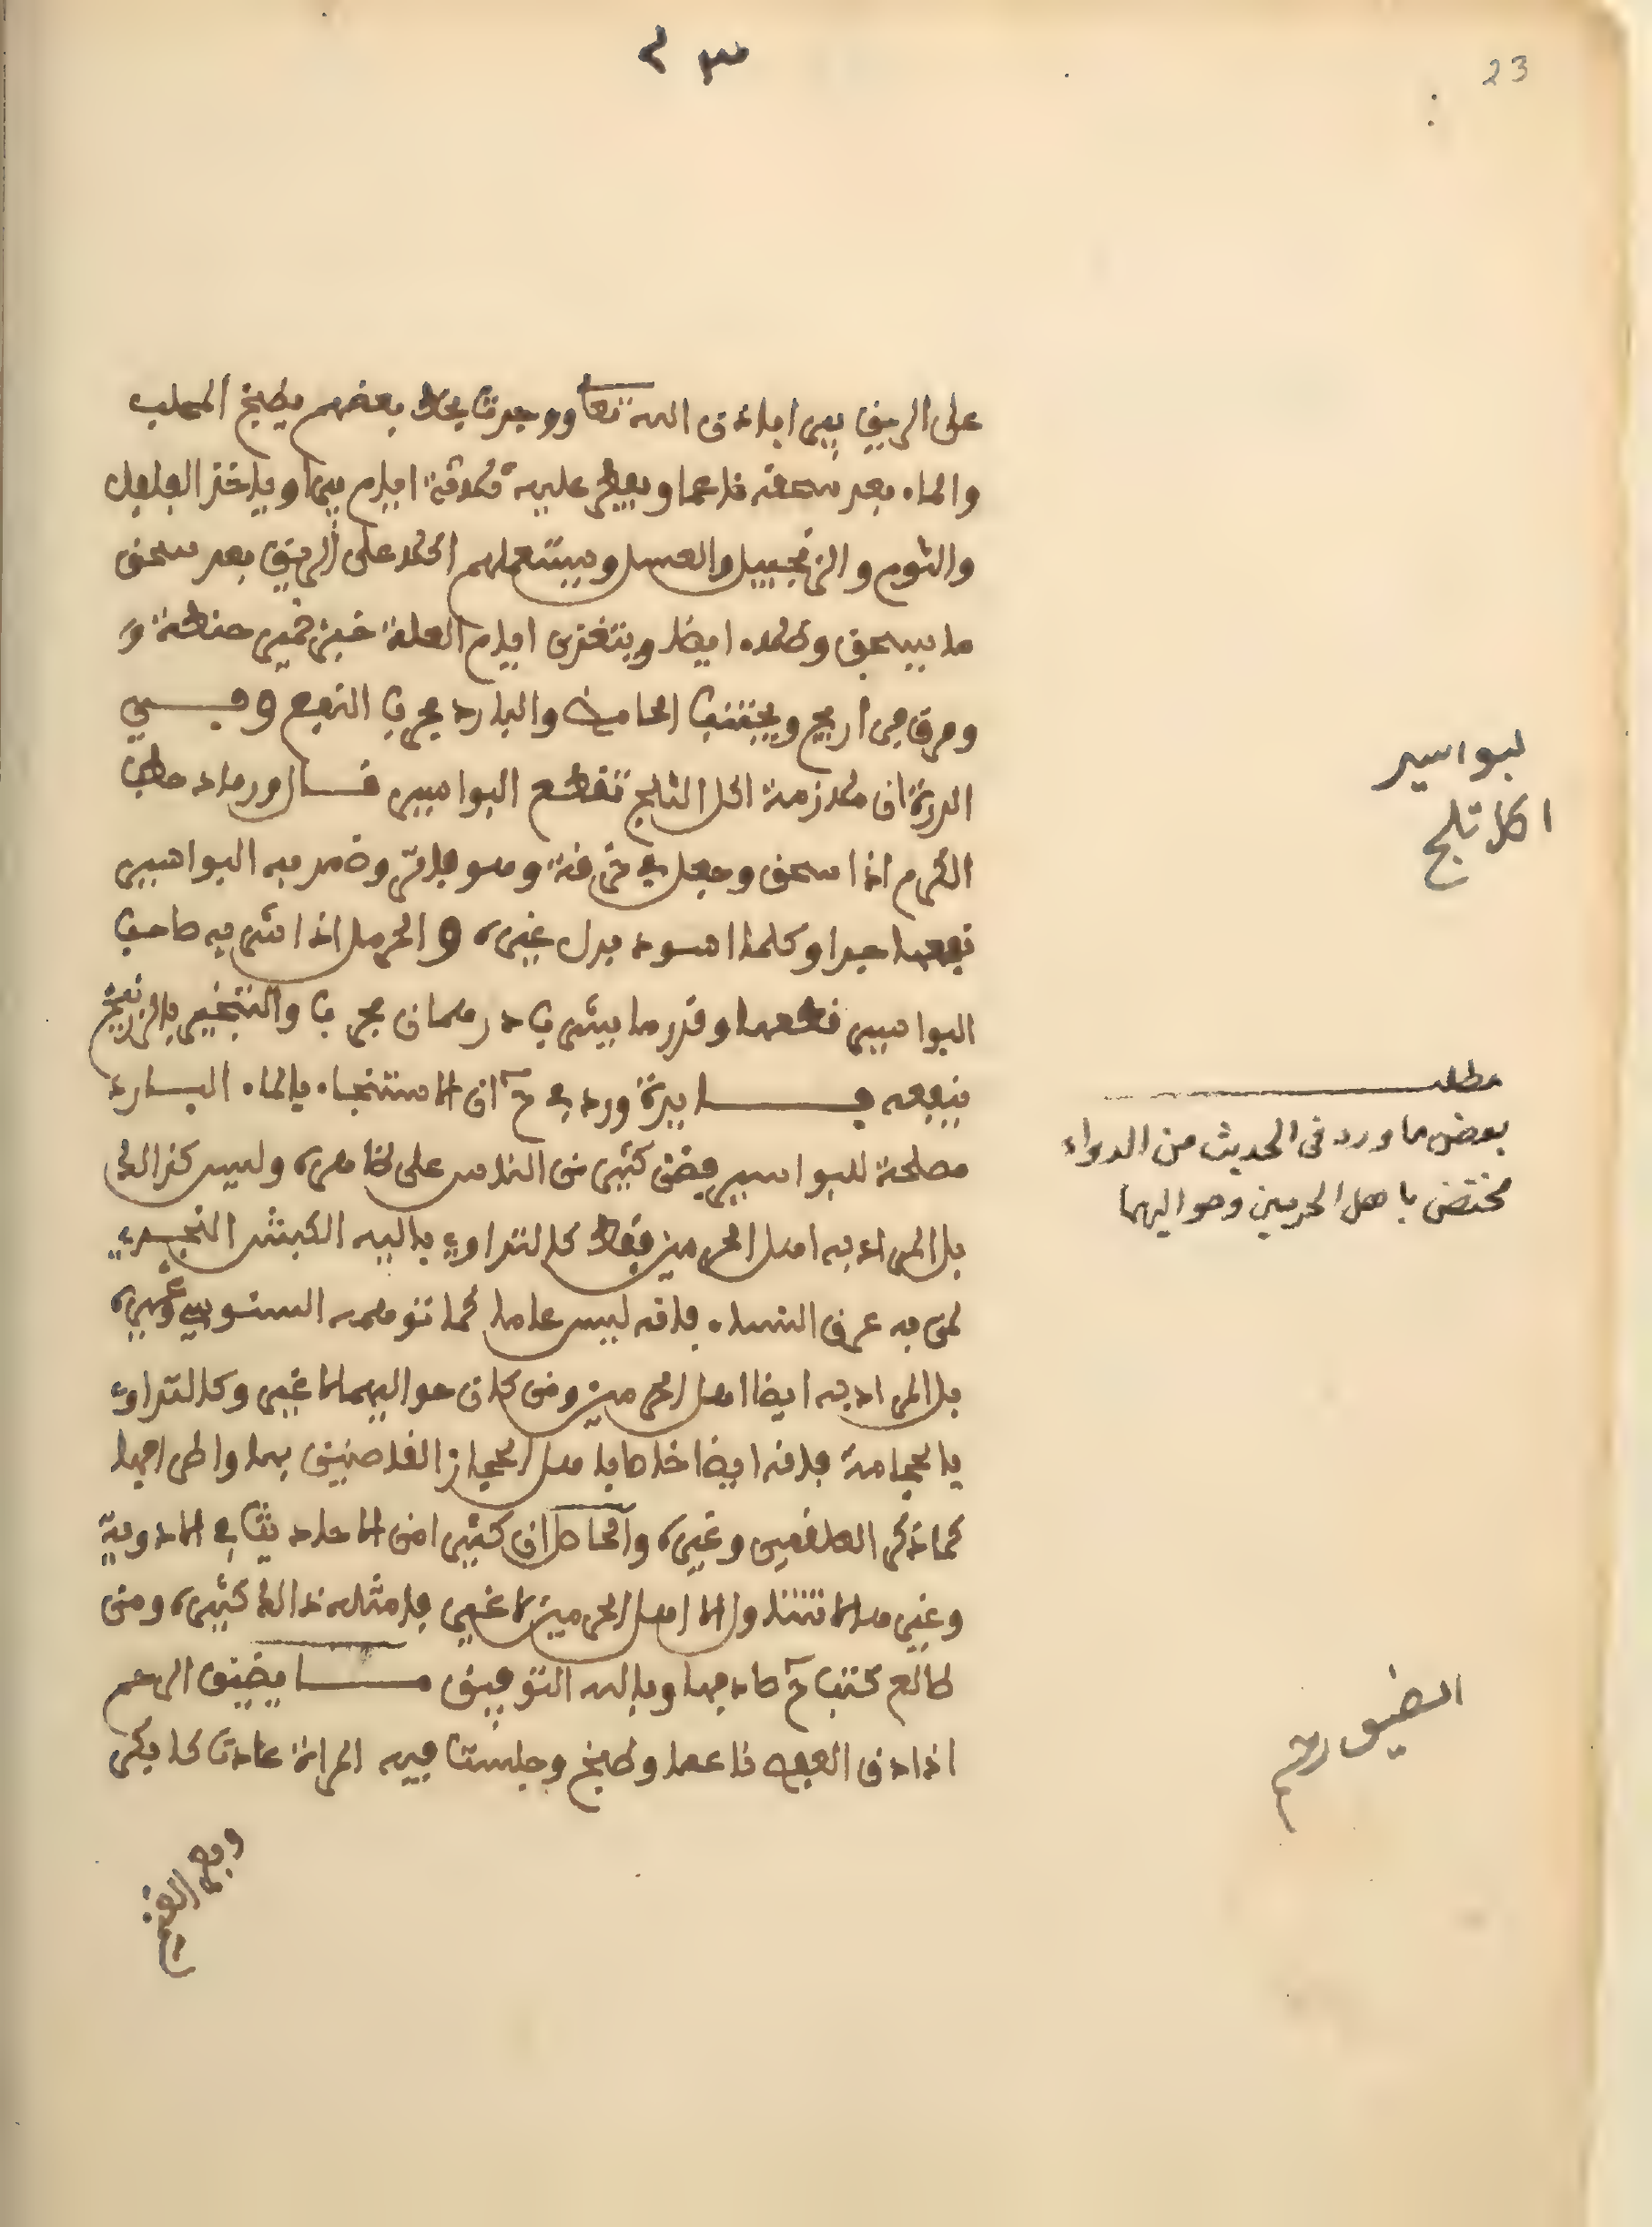 ٢٣
23
على الريق يبرا باذن الله تعا ووجدت بخط بعضهم يطبخ المحلب
والماء بعد سحقه ناعما ويفطر عليه ثلاثة ايام يبرا وياخذ الفلفل
والثوم والزنجبيل والعسل ويستعملهم اكلا على الريق بعد سحق
ما يسحق وطلاه ايضا ويتغذى ايام العلة خبز خمير حنطة و
ومرق ويجتنب الحامض والبارد مجرب النفع وفي
الدرة ان ملازمة اكل الثلج تقطع البواسير قال ورماد حطب
الكرم اذا سحق وجعل في خرقة وهو فاتر وضمد به البواسير
نفعها جيدا وكلما اسود بدل غيره والحرمل اذا شربه صاحب
البواسير قطعها وقدر ما يشرب درهمان مجرب والتبخير بالزرنيخ
ينفعه فايدة ورد في ح ان الاستنجاء بالماء البارد
مصلحة للبواسير فظن كثير من الناس على ظاهره وليس كذالك
بل المراد به اهل الحرمين فقط كالتداوي بالية الكبش النجدي
لمن به عرق النساء فانه ليس عاما كما توهمه السنوسي وغيره
بل المراد به ايضا اهل الحرمين ومن كان حواليهما لا غير وكالتداوي
بالحجامة فانه ايضا خاص باهل الحجاز القاطنين بها واطرافها
كما ذكر وغيره والحاصل ان كثيرا من الاحاديث في الادوية
وغيرها لا تتناول الا اهل الحرمين لا غير فامثله ذالك كثيرة ومن
طالع كتب ح صادفها وبالله التوفيق ما يضيق الرحم
اذا دق العفص ناعما وطبخ وجلست فيه المراة عادت كالبكر
وبعر الغنم
لبواسير
اكل ثلج
مطلب
بعض ما ورد فى الحديث من الدواء
مختص باهل الحرمين وحواليهما
لضيق رحم